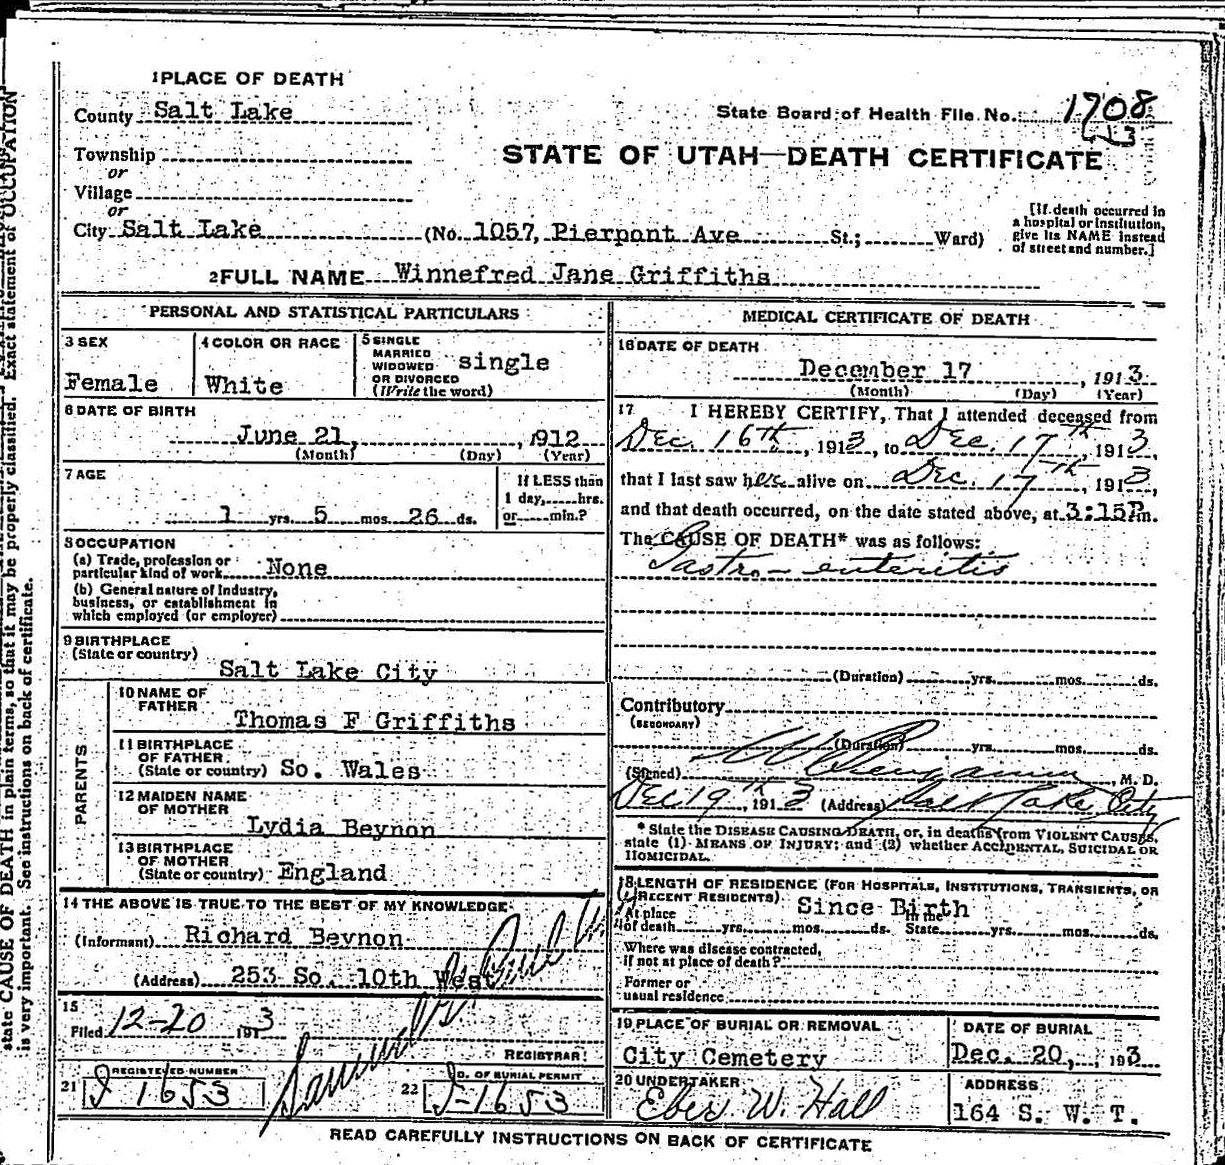 1 PLACE OF DEATH
County Salt Lake
State Board of Health File No. 1708
Township
or
STATE OF UTAH—DEATH CERTIFICATE
Village
or
City Salt Lake (No. 1057, Pierpont Ave St.; Ward)
[If death occurred in
a hospital or institution,
give its NAME instead
of street and number.]
2 FULL NAME Winnefred Jane Griffiths
PERSONAL AND STATISTICAL PARTICULARS
3 SEX
Female
4 COLOR OR RACE
White
5 SINGLE
MARRIED
WIDOWED
OR DIVORCED
(Write the word)
single
6 DATE OF BIRTH
June 21, , 1912
(Month) (Day) (Year)
7 AGE
1 yrs. 5 mos. 26 ds.
If LESS than
1 day, hrs.
or min.?
8 OCCUPATION
(a) Trade, profession or
particular kind of work None
(b) General nature of Industry,
business, or establishment in
which employed (or employer)
9 BIRTHPLACE
(State or country)
Salt Lake City
PARENTS
10 NAME OF
FATHER
Thomas F Griffiths
11 BIRTHPLACE
OF FATHER
(State or country) So. Wales
12 MAIDEN NAME
OF MOTHER
Lydia Beynon
13 BIRTHPLACE
OF MOTHER
(State or country) England
14 THE ABOVE IS TRUE TO THE BEST OF MY KNOWLEDGE
(Informant) Richard Beynon
(Address) 253 So. 10th West
15
Filed 12-20 1913
REGISTRAR
21 REGISTERED NUMBER
1653
22 NO. OF BURIAL PERMIT
1653
MEDICAL CERTIFICATE OF DEATH
16 DATE OF DEATH
December 17 , 1913
(Month) (Day) (Year)
17 I HEREBY CERTIFY, That I attended deceased from
Dec. 16th, 1913, to Dec. 17th, 1913,
that I last saw her alive on Dec. 17th, 1913,
and that death occurred, on the date stated above, at 3:15P.m.
The CAUSE OF DEATH* was as follows:
Gastro-enteritis
(Duration) yrs. mos. ds.
Contributory
(SECONDARY)
(Duration) yrs. mos. ds.
(Signed) Benjamin, M. D.
Dec 19th, 1913 (Address) Salt Lake City
* State the DISEASE CAUSING DEATH, or, in deaths from VIOLENT CAUSES,
state (1) MEANS OF INJURY; and (2) whether ACCIDENTAL, SUICIDAL OR
HOMICIDAL.
18 LENGTH OF RESIDENCE (FOR HOSPITALS, INSTITUTIONS, TRANSIENTS, OR
RECENT RESIDENTS) Since Birth
At place In the
of death yrs. mos. ds. State yrs. mos. ds.
Where was disease contracted,
if not at place of death?
Former or
usual residence
19 PLACE OF BURIAL OR REMOVAL
City Cemetery
DATE OF BURIAL
Dec. 20, , 1913
20 UNDERTAKER
Eber W. Hall
ADDRESS
164 S. W. T.
READ CAREFULLY INSTRUCTIONS ON BACK OF CERTIFICATE
state CAUSE OF DEATH in plain terms, so that it may be properly classified. Exact statement of OCCUPATION
is very important. See instructions on back of certificate.